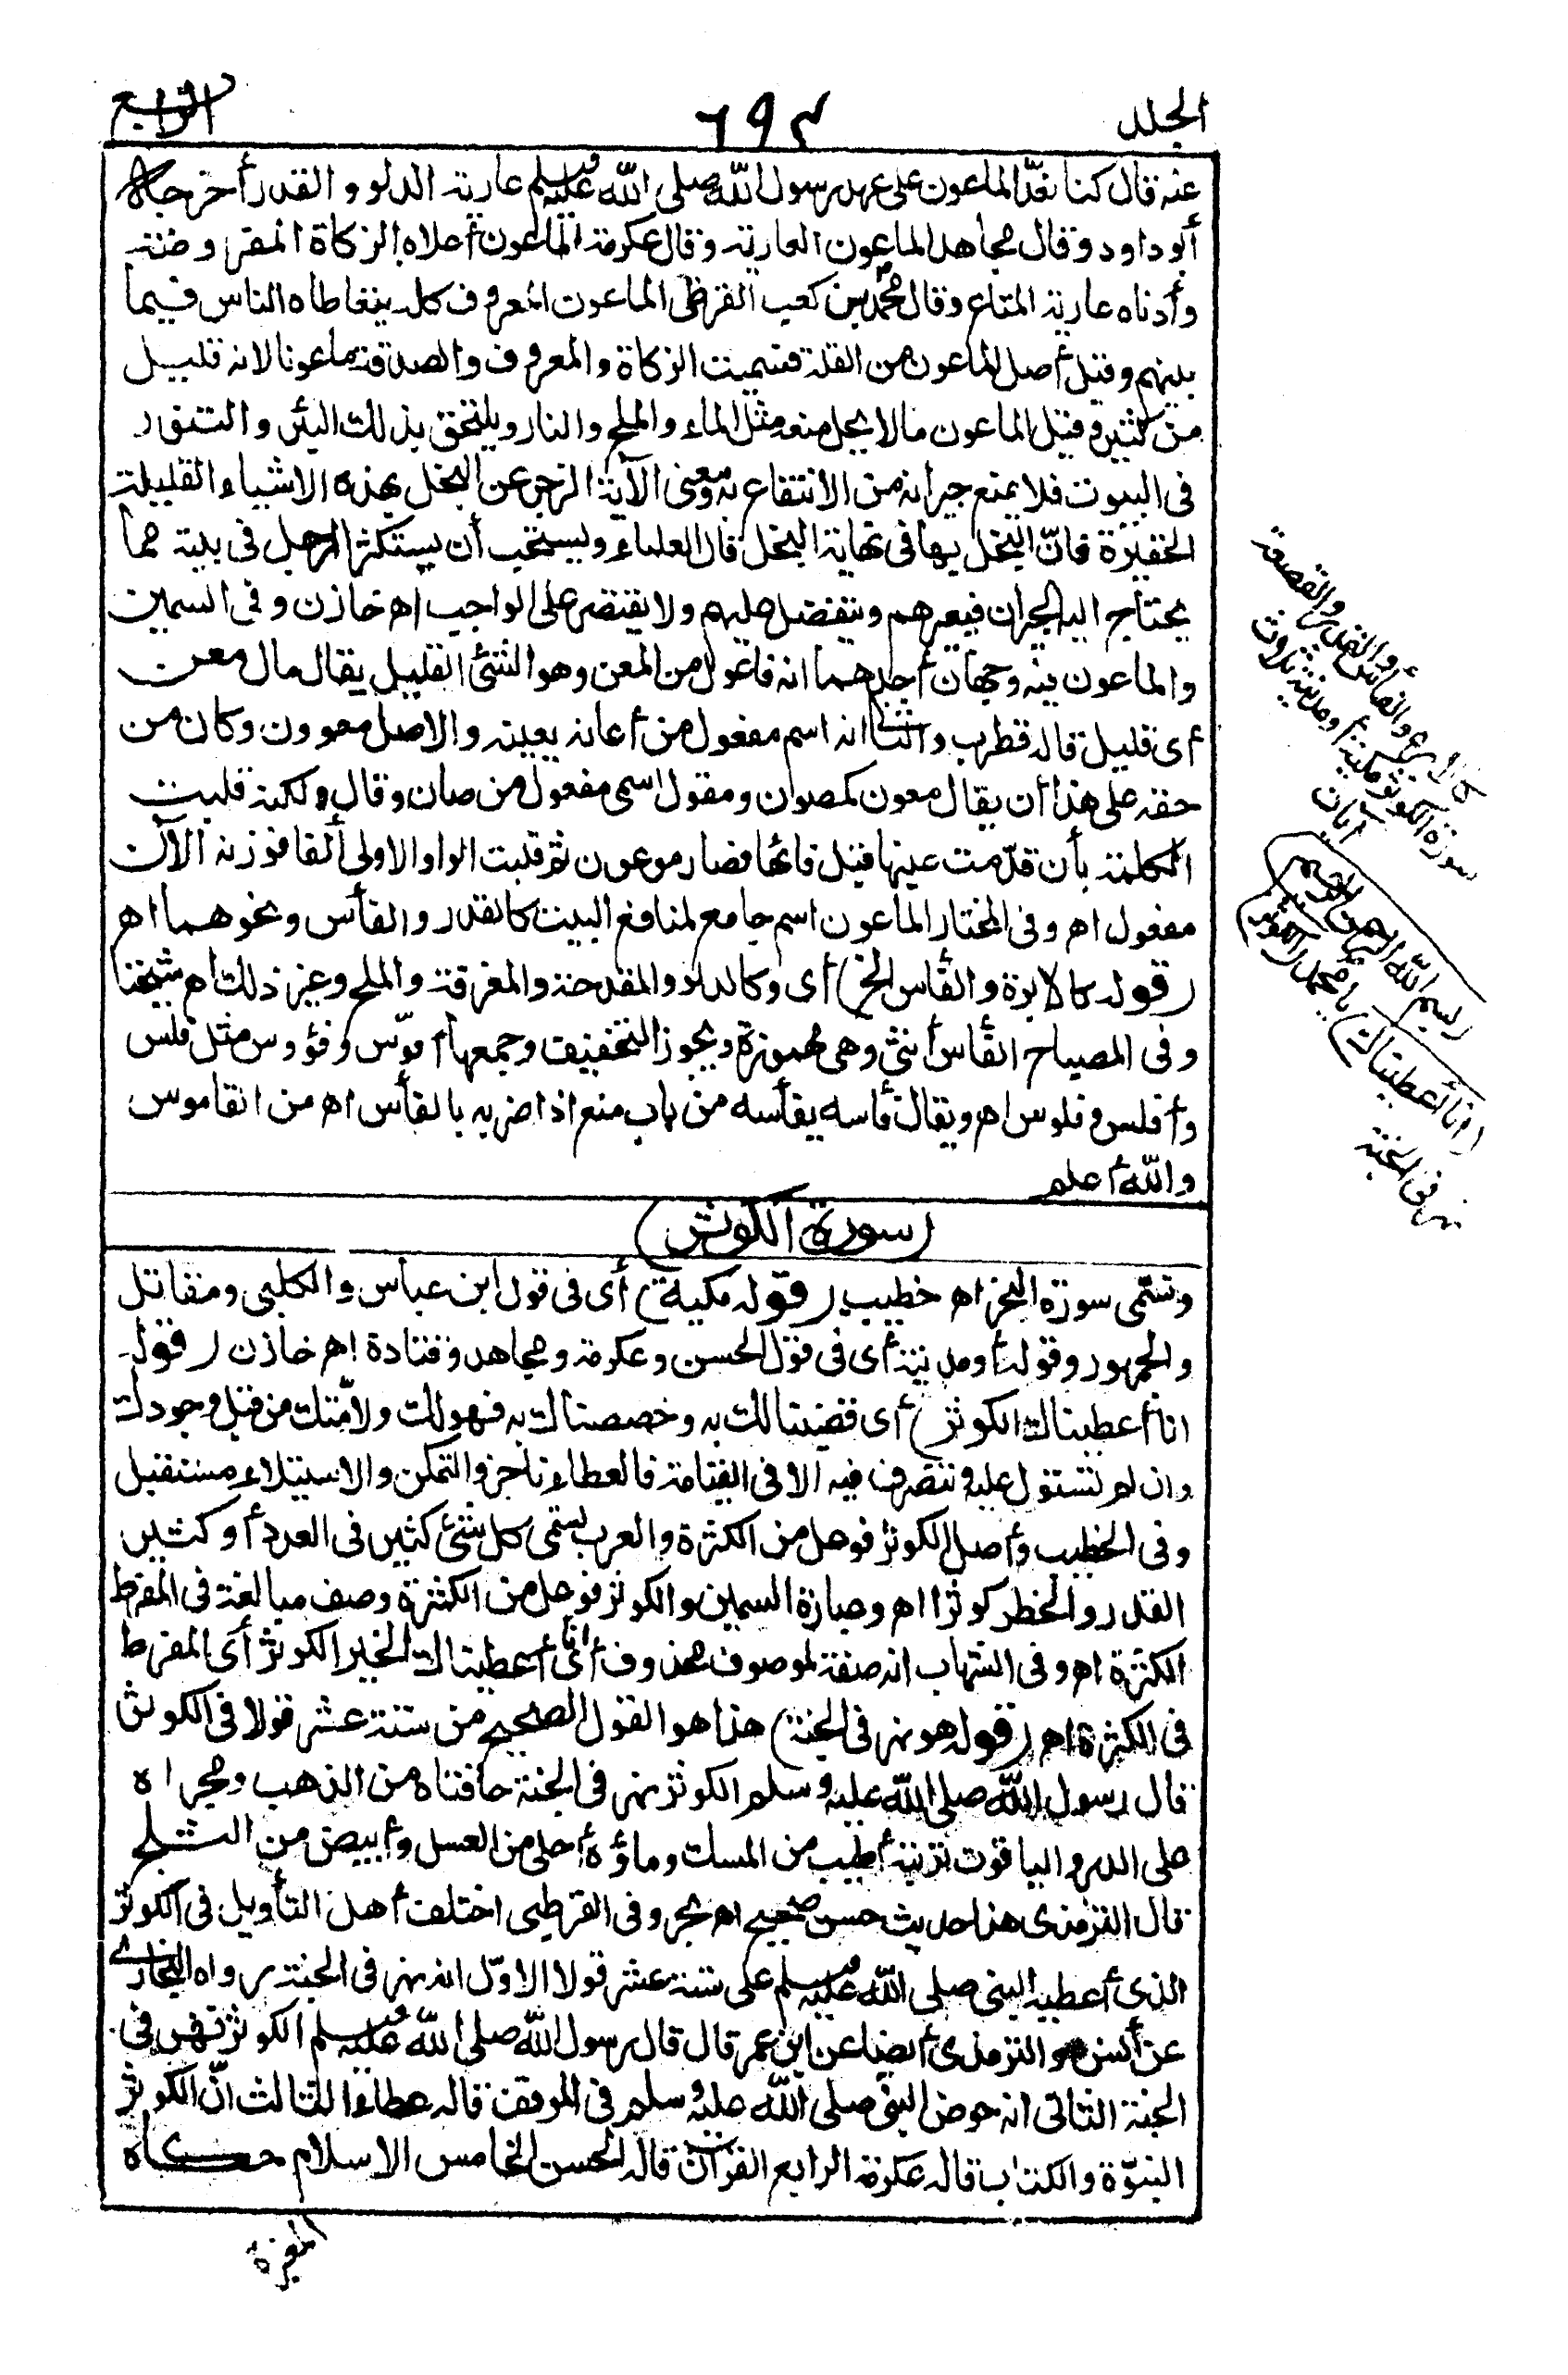 الجلد
٦٩٤
الرابع
عنه قال كنا نعدّ الماعون على عهد رسول الله صلى الله عليه وسلم عارية الدلو والقدر أخرجاه
أبو داود وقال مجاهد الماعون العارية وقال عكرمة الماعون أعلاه الزكاة المفروضة
وأدناه عارية المتاع وقال محمد بن كعب القرظى الماعون المعروف كله يتعاطاه الناس فيما
بينهم وقيل أصل الماعون من القلة فسميت الزكاة والمعروف والصدقة ماعونا لانه قليل
من كثير وقيل الماعون ما لا يحل منعه مثل الماء والملح والنار ويلتحق بذلك البئر والتنور
فى البيوت فلا يمنع جيرانه من الانتفاع به ومعنى الآية الزجر عن البخل بهذه الاشياء القليلة
الحقيرة فانّ البخل بها فى نهاية البخل قال العلماء ويستحب أن يستكثر الرجل فى بيته مما
يحتاج اليه الجيران فيعيرهم ويتفضل عليهم ولا يقتصر على الواجب اه خازن وفى السمين
والماعون فيه وجهان أحدهما انه فاعول من المعن وهو الشئ القليل يقال مال معن
أى قليل قاله قطرب والثانى انه اسم مفعول من أعانه يعينه والاصل معوون وكان من
حقه على هذا أن يقال معون كمصون ومقول اسمى مفعول من صان وقال ولكنه قلبت
الكلمة بأن قدّمت عينها قبل فائها فصار موعون ثم قلبت الواو الاولى ألفا فوزنه الآن
مفعول اه وفى المختار الماعون اسم جامع لمنافع البيت كالقدر والفأس ونحوهما اه
(قوله كالابرة والفأس الخ) أى وكالدلو والمقدحة والمغرفة والملح وغير ذلك اه شيخنا
وفى المصباح الفأس أنثى وهى مهموزة ويجوز التخفيف وجمعها أفؤس وفؤوس مثل فلس
وأفلس وفلوس اه ويقال فأسه يفأسه من باب منع اذا ضربه بالفأس اه من القاموس
والله أعلم
(سورة الكوثر)
وتسمّى سورة النحر اه خطيب (قوله مكية) أى فى قول ابن عباس والكلبى ومقاتل
والجمهور وقوله أو مدنية أى فى قول الحسن وعكرمة ومجاهد وقتادة اه خازن (قوله
انا أعطيناك الكوثر) أى قضينا لك به وخصصناك به فهو لك ولامّتك من قبل وجودك
وان لم تستول عليه وتتصرف فيه الا فى القيامة فالعطاء ناجز والتمكن والاستيلاء مستقبل
وفى الخطيب وأصل الكوثر فوعل من الكثرة والعرب تسمى كل شئ كثير فى العدد أو كثير
القدر والخطر كوثرا اه وعبارة السمين والكوثر فوعل من الكثرة وصف مبالغة فى المفرط
الكثرة اه وفى الشهاب انه صفة لموصوف محذوف أى انا أعطيناك الخير الكوثر أى المفرط
فى الكثرة اه (قوله هو نهر فى الجنة) هذا هو القول الصحيح من ستة عشر قولا فى الكوثر
قال رسول الله صلى الله عليه وسلم الكوثر نهر فى الجنة حافتاه من الذهب ومجراه
على الدر والياقوت تربته أطيب من المسك وماؤه أحلى من العسل وأبيض من الثلج
قال الترمذى هذا حديث حسن صحيح اه بحر وفى القرطبى اختلف أهل التأويل فى الكوثر
الذى أعطيه النبى صلى الله عليه وسلم على ستة عشر قولا الاوّل انه نهر فى الجنة رواه البخارى
عن أنس والترمذى أيضا عن ابن عمر قال قال رسول الله صلى الله عليه وسلم الكوثر نهر فى
الجنة الثانى انه حوض النبى صلى الله عليه وسلم فى الموقف قاله عطاء الثالث انّ الكوثر
النبوّة والكتاب قاله عكرمة الرابع القرآن قاله الحسن الخامس الاسلام حكاه
المغيرة
كالابرة والفأس والقدر والقصعة
سورة الكوثر مكية أو مدنية ثلاث
آيات
(بسم الله الرحمن الرحيم
انا أعطيناك) يا محمد (الكوثر)
نهر فى الجنة